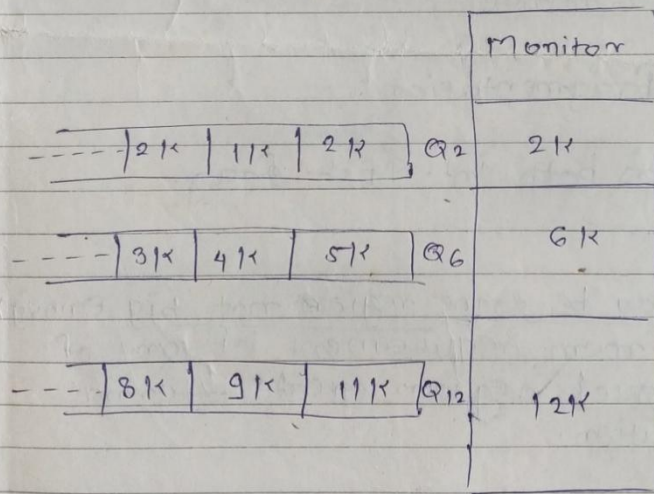 Monitor
2K 1K 2K Q2 2K
3K 4K 5K Q6 6K
8K 9K 11K Q12 12K